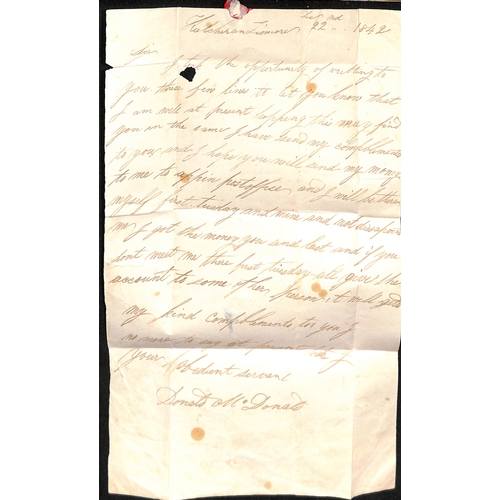 Decr rd
Kilcheran Lismore 22 .. 1842
Sir
I take the opportunity of writting to
you these few lines to let you know that
I am well at present hopping this may find
you in the same I have send my compliments
to you and I hope you will send my money
to me to appin postoffice and I will be there
myself first tuesday and mine and not disapoin
me I got the money you and last and if you
dont meet me there first tuesday give the
account to some other person it will
my kind compliments to you I
no more to say at present
Your Obedient servant
Donald McDonald